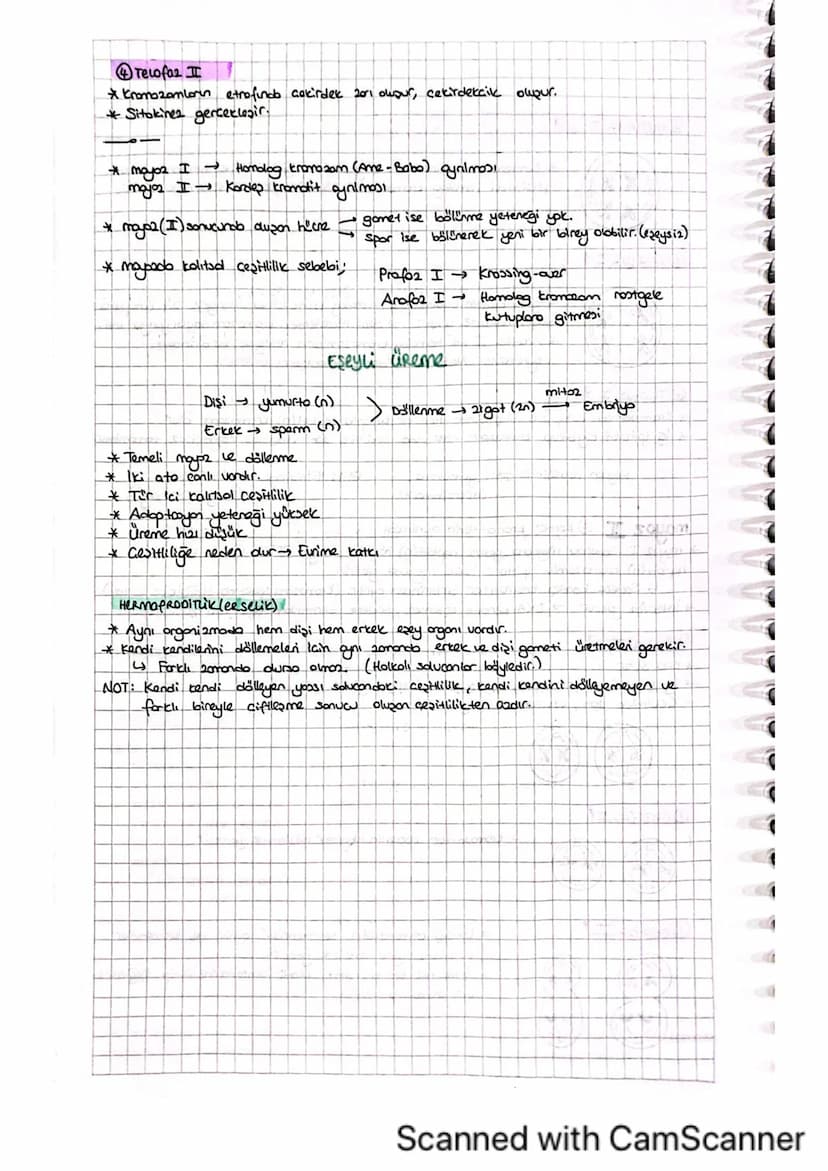 ④ Telofaz II
* Kromozomların etrafında çekirdek zarı oluşur, çekirdekcik oluşur.
* Sitokinez gerçekleşir.
* mayoz I → Homolog kromozom (Ana-Baba) ayrılması
mayoz II → Kardeş kromatit ayrılması
* mayoz(II) sonucunda oluşan hücre → gamet ise bölünme yeteneği yok.
→ spor ise bölünerek yeni bir birey olabilir. (eşeysiz)
* mayozda kalıtsal çeşitlilik sebebi;
Profaz I → Krossing-over
Anafaz I → Homolog kromozom rastgele
kutuplara gitmesi
Eşeyli Üreme
Dişi → yumurta (n)
Erkek → sperm (n)
> Döllenme → zigot (2n) mitoz → Embriyo
* Temeli mayoz ve döllenme
* İki ata canlı vardır.
* Tür içi kalıtsal çeşitlilik
* Adaptasyon yeteneği yüksek
* Üreme hızı düşük
* Çeşitliliğe neden olur → Evrime katkı
HERMAFRODİTLİK (erselik)
* Aynı organizmada hem dişi hem erkek eşey organı vardır.
* Kendi kendilerini döllemeleri için aynı zamanda erkek ve dişi gameti üretmeleri gerekir.
↳ Farklı zamanda olursa olmaz. (Halkalı solucanlar böyledir.)
NOT: Kendi kendi dölleyen yassı solucandaki çeşitlilik, kendi kendini dölleyemeyen ve
farklı bireyle çiftleşme sonucu oluşan çeşitlilikten azdır.
Scanned with CamScanner